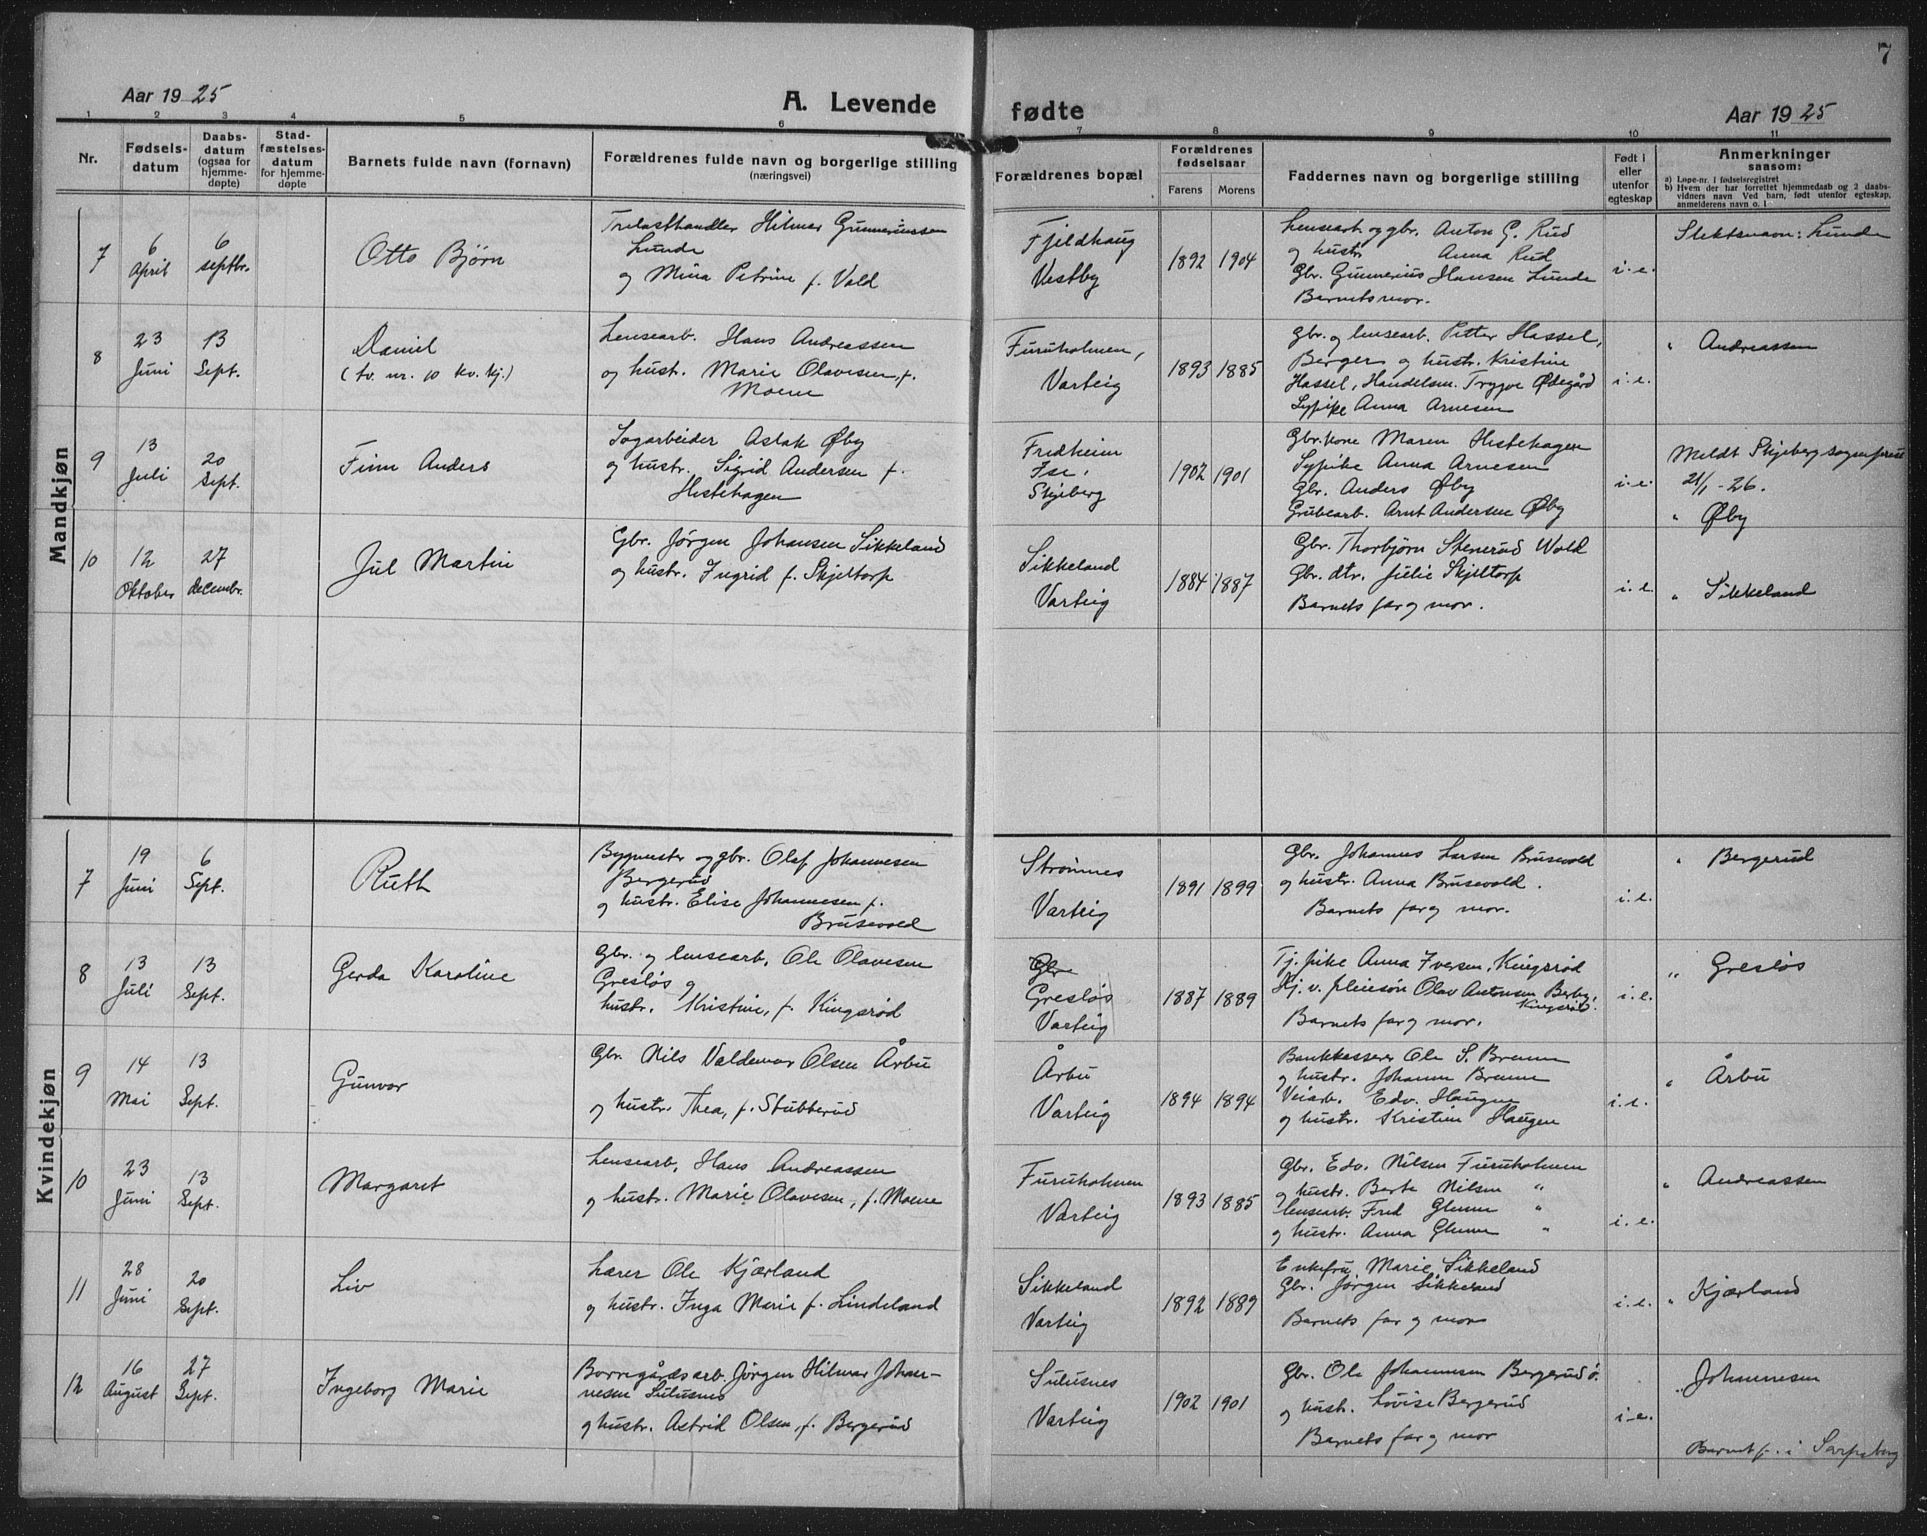 7
Aar 1925
A. Levende fødte
Aar 1925
1 2 3 4 5 6 7 8 9 10 11
Nr.
Fødselsdatum
Daabsdatum (ogsaa for hjemmedøpte)
Stadfæstelsesdatum for hjemmedøpte
Barnets fulde navn (fornavn)
Forældrenes fulde navn og borgerlige stilling
(næringsvei)
Forældrenes bopæl
Forældrenes fødselsaar
Farens Morens
Faddernes navn og borgerlige stilling
Født i eller utenfor egteskap
Anmerkninger
saasom:
a) Løpe-nr. i fødselsregistret
b) Hvem der har forrettet hjemmedaab og 2 daabsvidners navn Ved barn, født utenfor egteskap, anmelderens navn o. l
Mandkjøn
7
6 April
6 septbr.
Otto Bjørn
Trelasthandler Hilmar Gunneriussen
Lunde
og Mina Petrine f. Vald
Fjeldhaug
Vestby
1892 1904
Lensearb. og gbr. Anton G. Rud
og hustr. Anna Rud
Gbr. Gunnerius Hansen Lunde
Barnets mor.
i.e.
Slektsnavn: Lunde
8
23 Juni
13 Sept.
Daniel
(tv. nr. 10 kv. kj.)
Lensearb. Hans Andreassen
og hustr. Marie Olavesen, f.
Moene
Furuholmen,
Varteig
1893 1885
Gbr. og lensearb. Petter Hassel,
Berger og hustr. Kristine
Hassel, Handelsm. Trygve Ødegård
Sypike Anna Arnesen
i.e.
" Andreassen
9
13 Juli
20 Sept.
Finn Anders
Sagarbeider Aslak Øby
og hustr. Sigrid Andersen f.
Hestehagen
Fredheim
Ise,
Skjeberg
1902 1901
Gbr. kone Maren Hestehagen
Sypike Anna Arnesen
Gbr. Anders Øby
Grubearb. Arnt Andersen Øby
i.e.
Meldt Skjeberg sogneprest
21/1 - 26.
" Øby
10
12 Oktober
27 decembr.
Jul Martin
Gbr. Jørgen Johansen Sikkeland
og hustr. Ingrid f. Skjeltorp
Sikkeland
Varteig
1884 1887
Gbr. Thorbjørn Stenerud Wold
Gbr. dtr. Julie Skjeltorp
Barnets far og mor.
i.e.
" Sikkeland
Kvindekjøn
7
19 Juni
6 Sept.
Ruth
Bygmester og gbr. Olaf Johannesen
Bergerud
og hustr. Elise Johannesen f.
Brusevold
Strømnes
Varteig
1891 1899
Gbr. Johannes Larsen Brusevold
og hustr. Anna Brusevold.
Barnets far og mor.
i.e.
" Bergerud
8
13 Juli
13 Sept.
Gerda Karoline
Gbr. og lensearb. Ole Olavesen
Gresløs og
hustr. Kristine, f. Kingsrød
Gresløs
Varteig
1887 1889
Tj. pike Anna Iversen, Kingsrød
Olav Antonsen Berby,
Kingsrød.
Barnets far og mor.
i.e.
" Gresløs
9
14 Mai
13 Sept.
Gunvor
Gbr. Nils Valdemar Olsen Årbu
og hustr. Thea, f. Stubberud
Årbu
Varteig
1894 1894
Bankkasserer Ole S. Brenne
og hustr. Johanne Brenne
Veiarb. Edv. Haugen
og hustr. Kristine Haugen
i.e.
" Årbu
10
23 Juni
13 Sept.
Margaret
Lensearb. Hans Andreassen
og hustr. Marie Olavesen, f. Moene
Furuholmen
Varteig
1893 1885
Gbr. Edv. Nilsen Furuholmen
og hustr. Berte Nilsen "
lensearb. Fred Glenne "
og hustr. Anna Glenne "
i.e.
" Andreassen
11
28 Juni
20 Sept.
Liv
Lærer Ole Kjærland
og hustr. Inga Marie f. Lindeland
Sikkeland
Varteig
1892 1889
Enkefru Marie Sikkeland
Gbr. Jørgen Sikkeland
Barnets far og mor
i.e.
" Kjærland
12
16 August
27 Sept.
Ingeborg Marie
Borregårdsarb. Jørgen Hilmar Johan-
nesen Sulusnes
og hustr. Astrid Olsen, f. Bergerud
Sulusnes
Varteig
1902 1901
Gbr. Ole Johannesen Bergerud ø.
og hustr. Lovise Bergerud
Barnets far og mor
i.e.
" Johannesen
Barnet f. i Sarpsborg